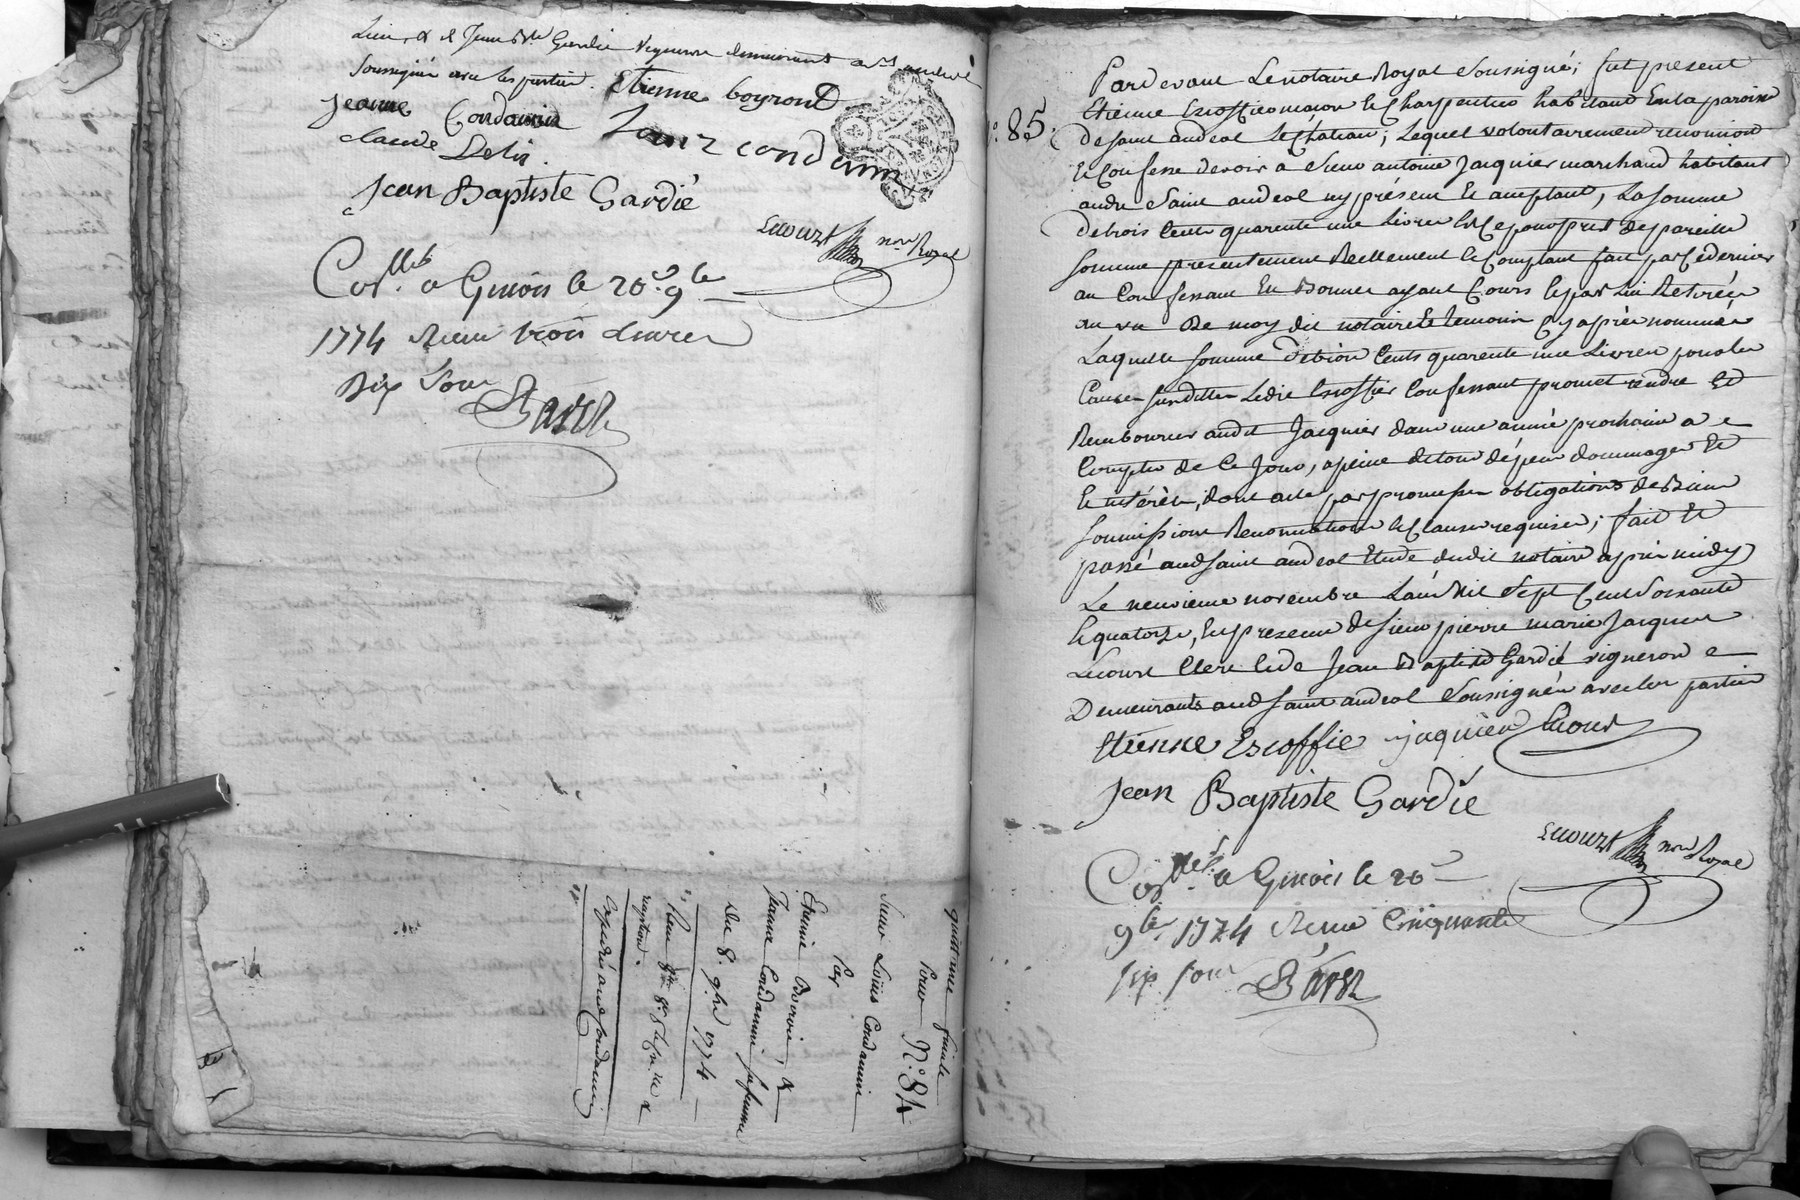 Lieu, & de Jean Bte Gardié vigneron demeurants aud saint andéol
Soussignés avec les parties. Etienne boyront
Jeanne Condamin Louiz condamin
claude Delir.
Jean Baptiste Gardié
Lecourt nore Royal
Coller a Givors le 20 9bre
1774 Recu trois Livres
dix Sous
Quittance finale
Pour N°. 84
Sieur Loüis Condamine
Par
Etienne &
Jeanne Condamine sa femme
du 8. 9bre 1774
Expedié aud Condamin
N°. 85.
Pardevant Le notaire Royal Soussigné; fut present
Etienne Escoffier maçon et Charpentier habitant En la paroisse
de saint andeol le Château; Lequel volontairement reconnoit
et Confesse devoir a Sieur antoine Jacquier marchand habitant
audit Saint andeol icy présent et acceptant, La somme
de trois Cents quarente une Livres Et ce pour pret de pareille
somme presentement Reellement et Comptant fait par Ce dernier
au Confessant En Bonnes ayant Cours et par Lui Retirées
au vu De moy dit notaire et temoins Cy après nommés
Laquelle somme de trois Cents quarente une Livres pour les
Causes susdittes Ledit Escoffier Confessant promet rendre Et
Rembourser audit Jacquier dans une année prochaine a
Compter de Ce Jour, a peine de tous dépens dommages Et
Interêts, dont acte par promesses obligations de Biens
soumissions Renonciations et Clauses requises; fait Et
passé aud saint andeol Etude dudit notaire après midy
Le neuvieme novembre L'an Mil Sept Cent Soixante
Et quatorze, En presence de Sieur pierre marie Jacques
Lecourt Clerc et de Jean Baptiste Gardié vigneron
Demeurants aud saint andeol Soussignés avec les parties
Etienne Escoffie jaquier Lecourt
Jean Baptiste Gardié
Lecourt nore Royal
Coller a Givors le 20
9bre 1774 Recu Cinquante
six sous